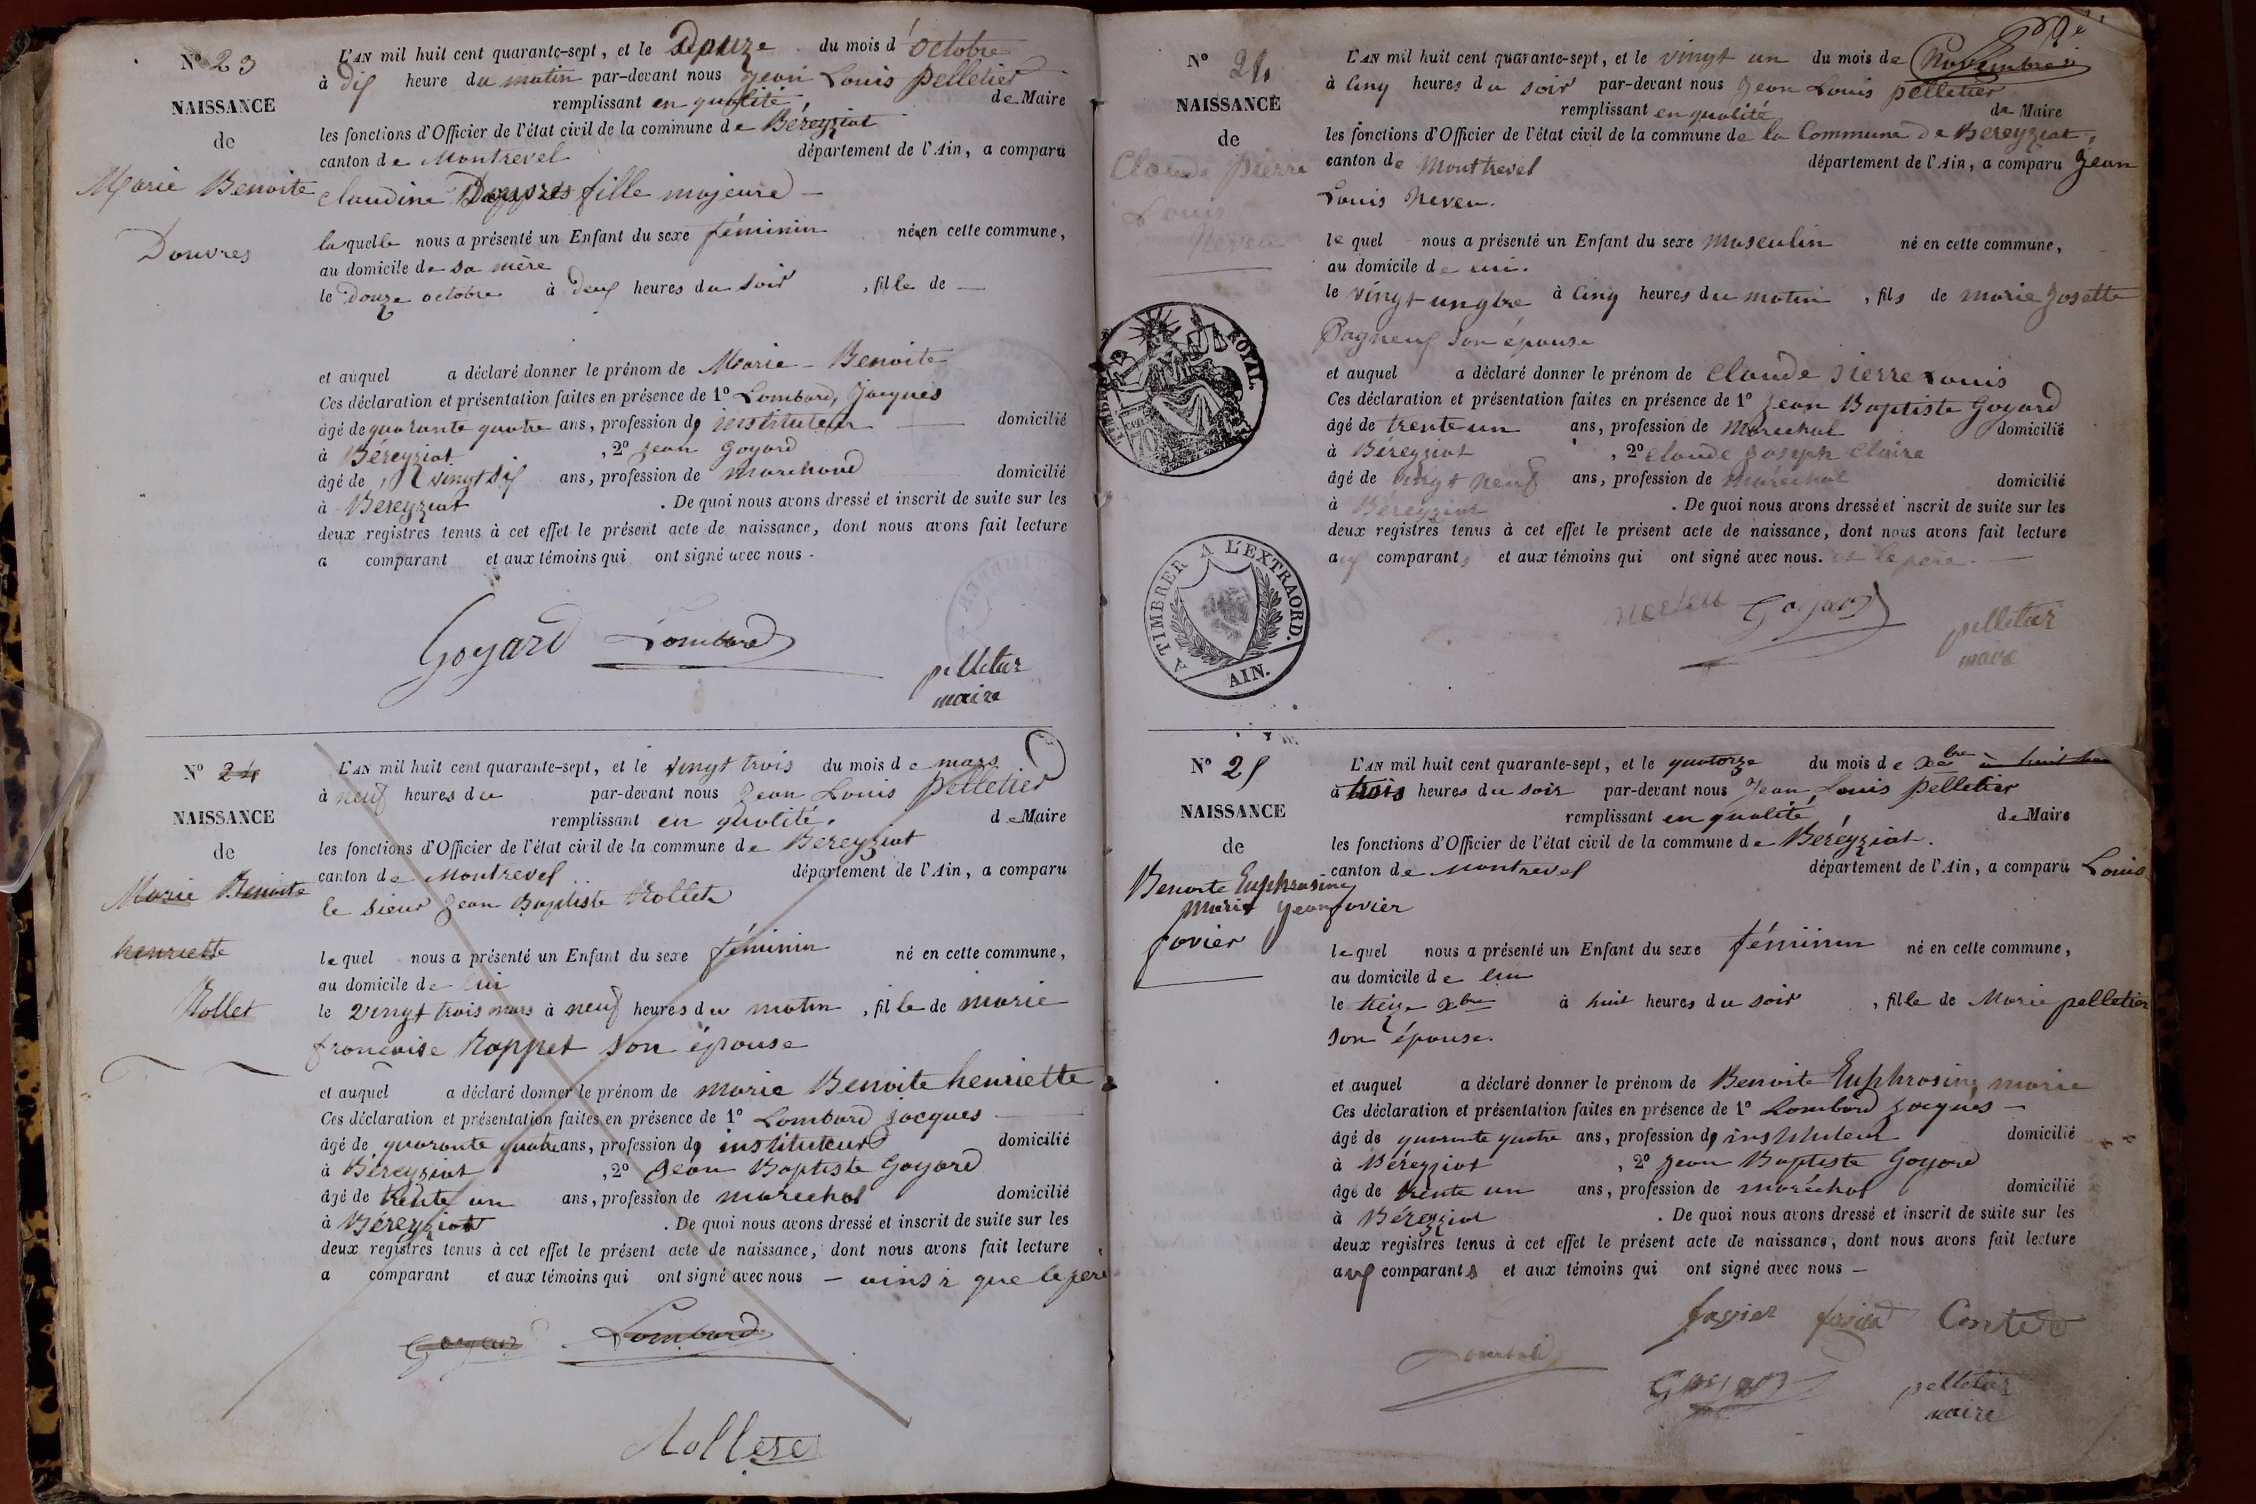 N° 23
NAISSANCE
de
Marie Benoite
Douvres
L'AN mil huit cent quarante-sept, et le Douze du mois d'octobre
à dix heure du matin par-devant nous Jean Louis Pelletier
remplissant en qualité de Maire
les fonctions d'Officier de l'état civil de la commune de Béreyziat
canton de Montrevel département de l'Ain, a comparu
Claudine Douvres fille majeure
laquelle nous a présenté un Enfant du sexe féminin né en cette commune,
au domicile de sa mère
le Douze octobre à deux heures du soir, fille de —
et auquel a déclaré donner le prénom de Marie - Benoite
Ces déclaration et présentation faites en présence de 1° Lombard, Jacques
âgé de quarante quatre ans, profession d' instituteur domicilié
à Béreyziat, 2° Jean Goyard
âgé de vingt six ans, profession de marchand domicilié
à Béreyziat. De quoi nous avons dressé et inscrit de suite sur les
deux registres tenus à cet effet le présent acte de naissance, dont nous avons fait lecture
a comparant et aux témoins qui ont signé avec nous.
Goyard Lombard
pelletier
maire
N° 24
NAISSANCE
de
Marie Benoite
henriette
Rollet
L'AN mil huit cent quarante-sept, et le vingt trois du mois de mars
à neuf heures du par-devant nous Jean Louis Pelletier
remplissant en qualité de Maire
les fonctions d'Officier de l'état civil de la commune de Béreyziat
canton de Montrevel département de l'Ain, a comparu
le sieur Jean Baptiste Rollet
lequel nous a présenté un Enfant du sexe féminin né en cette commune,
au domicile de lui
le vingt trois mars à neuf heures du matin, fille de marie
francoise Roppet son épouse
et auquel a déclaré donner le prénom de marie Benoite henriette
Ces déclaration et présentation faites en présence de 1° Lombard Jacques
âgé de quarante quatre ans, profession d' instituteur domicilié
à Béreyziat, 2° Jean Baptiste Goyard
âgé de trente un ans, profession de maréchal domicilié
à Béreyziat. De quoi nous avons dressé et inscrit de suite sur les
deux registres tenus à cet effet le présent acte de naissance, dont nous avons fait lecture
a comparant et aux témoins qui ont signé avec nous — ainsi que le père
Goyard Lombard
N° 24
NAISSANCE
de
Claude Pierre
Louis
Neveu
L'AN mil huit cent quarante-sept, et le vingt un du mois de Novembre
à cinq heures du soir par-devant nous Jean Louis pelletier
remplissant en qualité de Maire
les fonctions d'Officier de l'état civil de la commune de la Commune de Bereyziat,
canton de Montrevel département de l'Ain, a comparu Jean
Louis Neveu.
lequel nous a présenté un Enfant du sexe masculin né en cette commune,
au domicile de lui.
le vingt un 9bre à cinq heures du matin, fils de marie Josette
Pagneux son épouse
et auquel a déclaré donner le prénom de Claude Pierre Louis
Ces déclaration et présentation faites en présence de 1° Jean Baptiste Goyard
âgé de trente un ans, profession de Maréchal domicilié
à Béreyziat, 2° Claude Joseph Claire
âgé de vingt neuf ans, profession de maréchal domicilié
à Béreyziat. De quoi nous avons dressé et inscrit de suite sur les
deux registres tenus à cet effet le présent acte de naissance, dont nous avons fait lecture
aux comparants et aux témoins qui ont signé avec nous. et le père.
TIMBRE ROYAL
A TIMBRER A L'EXTRAORD.
AIN.
neveu Goyard pelletier
maire
N° 25
NAISSANCE
de
Benoite Euphrosine
Marie
favier
L'AN mil huit cent quarante-sept, et le quatorze du mois de Xbre
à trois heures du soir par-devant nous Jean Louis Pelletier
remplissant en qualité de Maire
les fonctions d'Officier de l'état civil de la commune de Beréyziat.
canton de Montrevel département de l'Ain, a comparu Louis
Jean favier
lequel nous a présenté un Enfant du sexe féminin né en cette commune,
au domicile de lui
le treize Xbre à huit heures du soir, fille de Marie pelletier
son épouse.
et auquel a déclaré donner le prénom de Benoite Euphrosine marie
Ces déclaration et présentation faites en présence de 1° Lombard Jacques —
âgé de quarante quatre ans, profession d' instituteur domicilié
à Béreyziat, 2° Jean Baptiste Goyard
âgé de trente un ans, profession de maréchal domicilié
à Béreyziat. De quoi nous avons dressé et inscrit de suite sur les
deux registres tenus à cet effet le présent acte de naissance, dont nous avons fait lecture
aux comparants et aux témoins qui ont signé avec nous —
favier favier
Lombard Goyard pelletier
maire